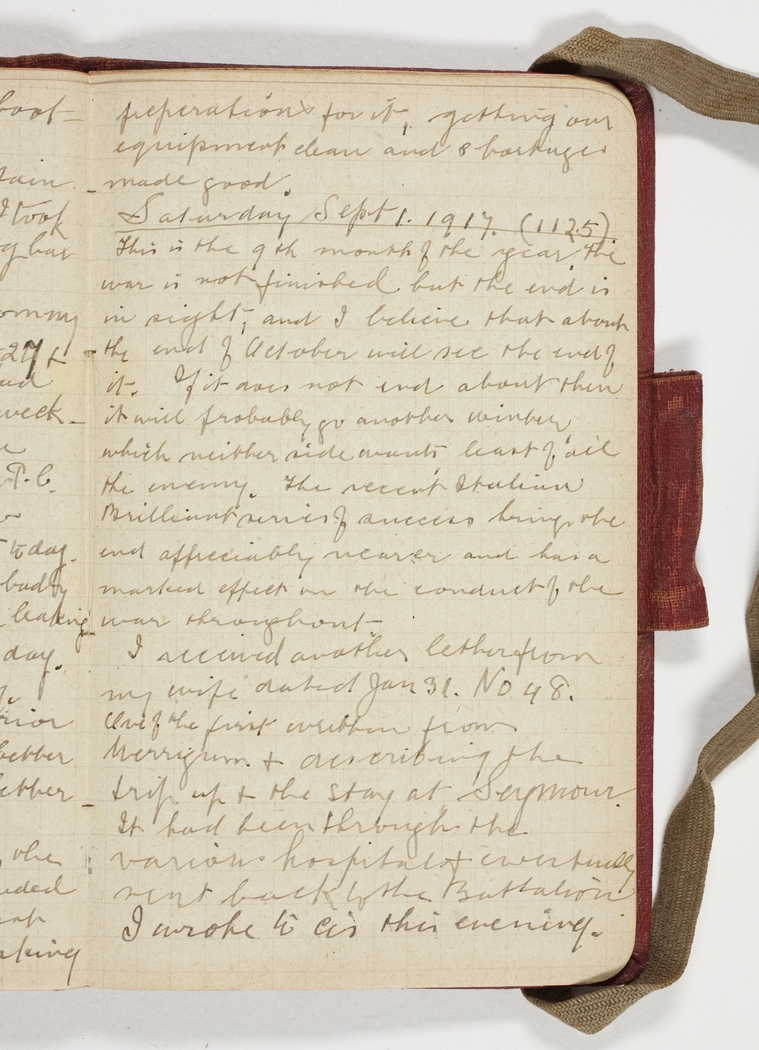 boot-
tain
I took
g bar
ommy
27th
week-
P.C.
today.
badly
leaking
day.
rior
better
better
the
nded
aking
preperations for it, getting our
equipment clean and shortages
made good.
Saturday Sept 1. 1917. (1125).
This is the 9th month of the year, the
war is not finished but the end is
in sight, and I believe that about
the end of October will see the end of
it. If it does not end about then
it will probably go another winter
which neither side wants least of all
the enemy. The recent Italian
Brilliant series of success brings the
end appreciably nearer and has a
marked effect on the conduct of the
war throughout
I received another letter from
my wife dated Jan 31. No 48.
One of the first written from
Merrigum & describing the
trip up & the stay at Seymour.
It had been through the
various hospitals & eventually
sent back to the Battalion
I wrote to Cis this evening.